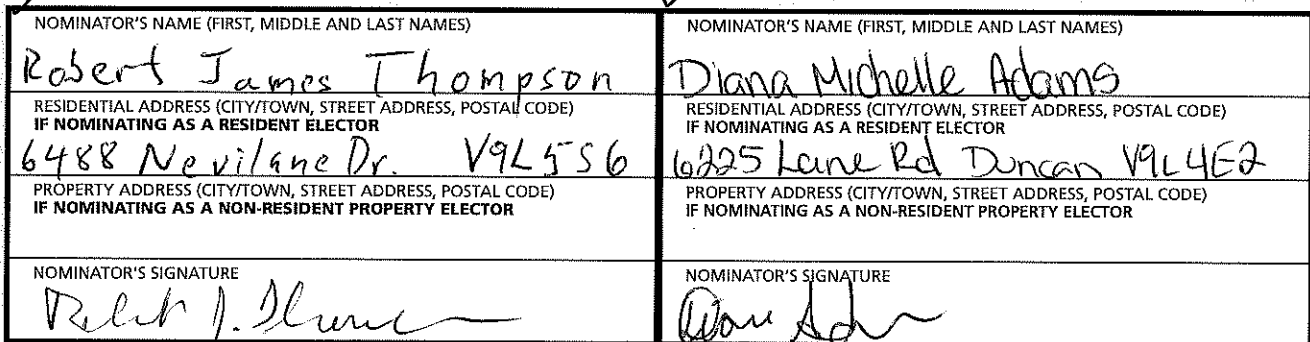 NOMINATOR'S NAME (FIRST, MIDDLE AND LAST NAMES)
Robert James Thompson
RESIDENTIAL ADDRESS (CITY/TOWN, STREET ADDRESS, POSTAL CODE)
IF NOMINATING AS A RESIDENT ELECTOR
6488 Nevilane Dr. V9L 5S6
PROPERTY ADDRESS (CITY/TOWN, STREET ADDRESS, POSTAL CODE)
IF NOMINATING AS A NON-RESIDENT PROPERTY ELECTOR
NOMINATOR'S SIGNATURE
NOMINATOR'S NAME (FIRST, MIDDLE AND LAST NAMES)
Diana Michelle Adams
RESIDENTIAL ADDRESS (CITY/TOWN, STREET ADDRESS, POSTAL CODE)
IF NOMINATING AS A RESIDENT ELECTOR
6225 Lane Rd Duncan V9L 4E2
PROPERTY ADDRESS (CITY/TOWN, STREET ADDRESS, POSTAL CODE)
IF NOMINATING AS A NON-RESIDENT PROPERTY ELECTOR
NOMINATOR'S SIGNATURE